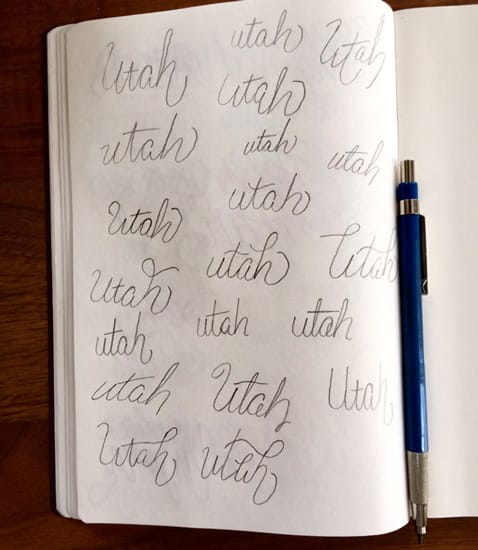 Utah utah Utah
Utah
utah utah utah
Utah utah
Utah utah Utah
utah utah utah
utah Utah Utah
Utah utah